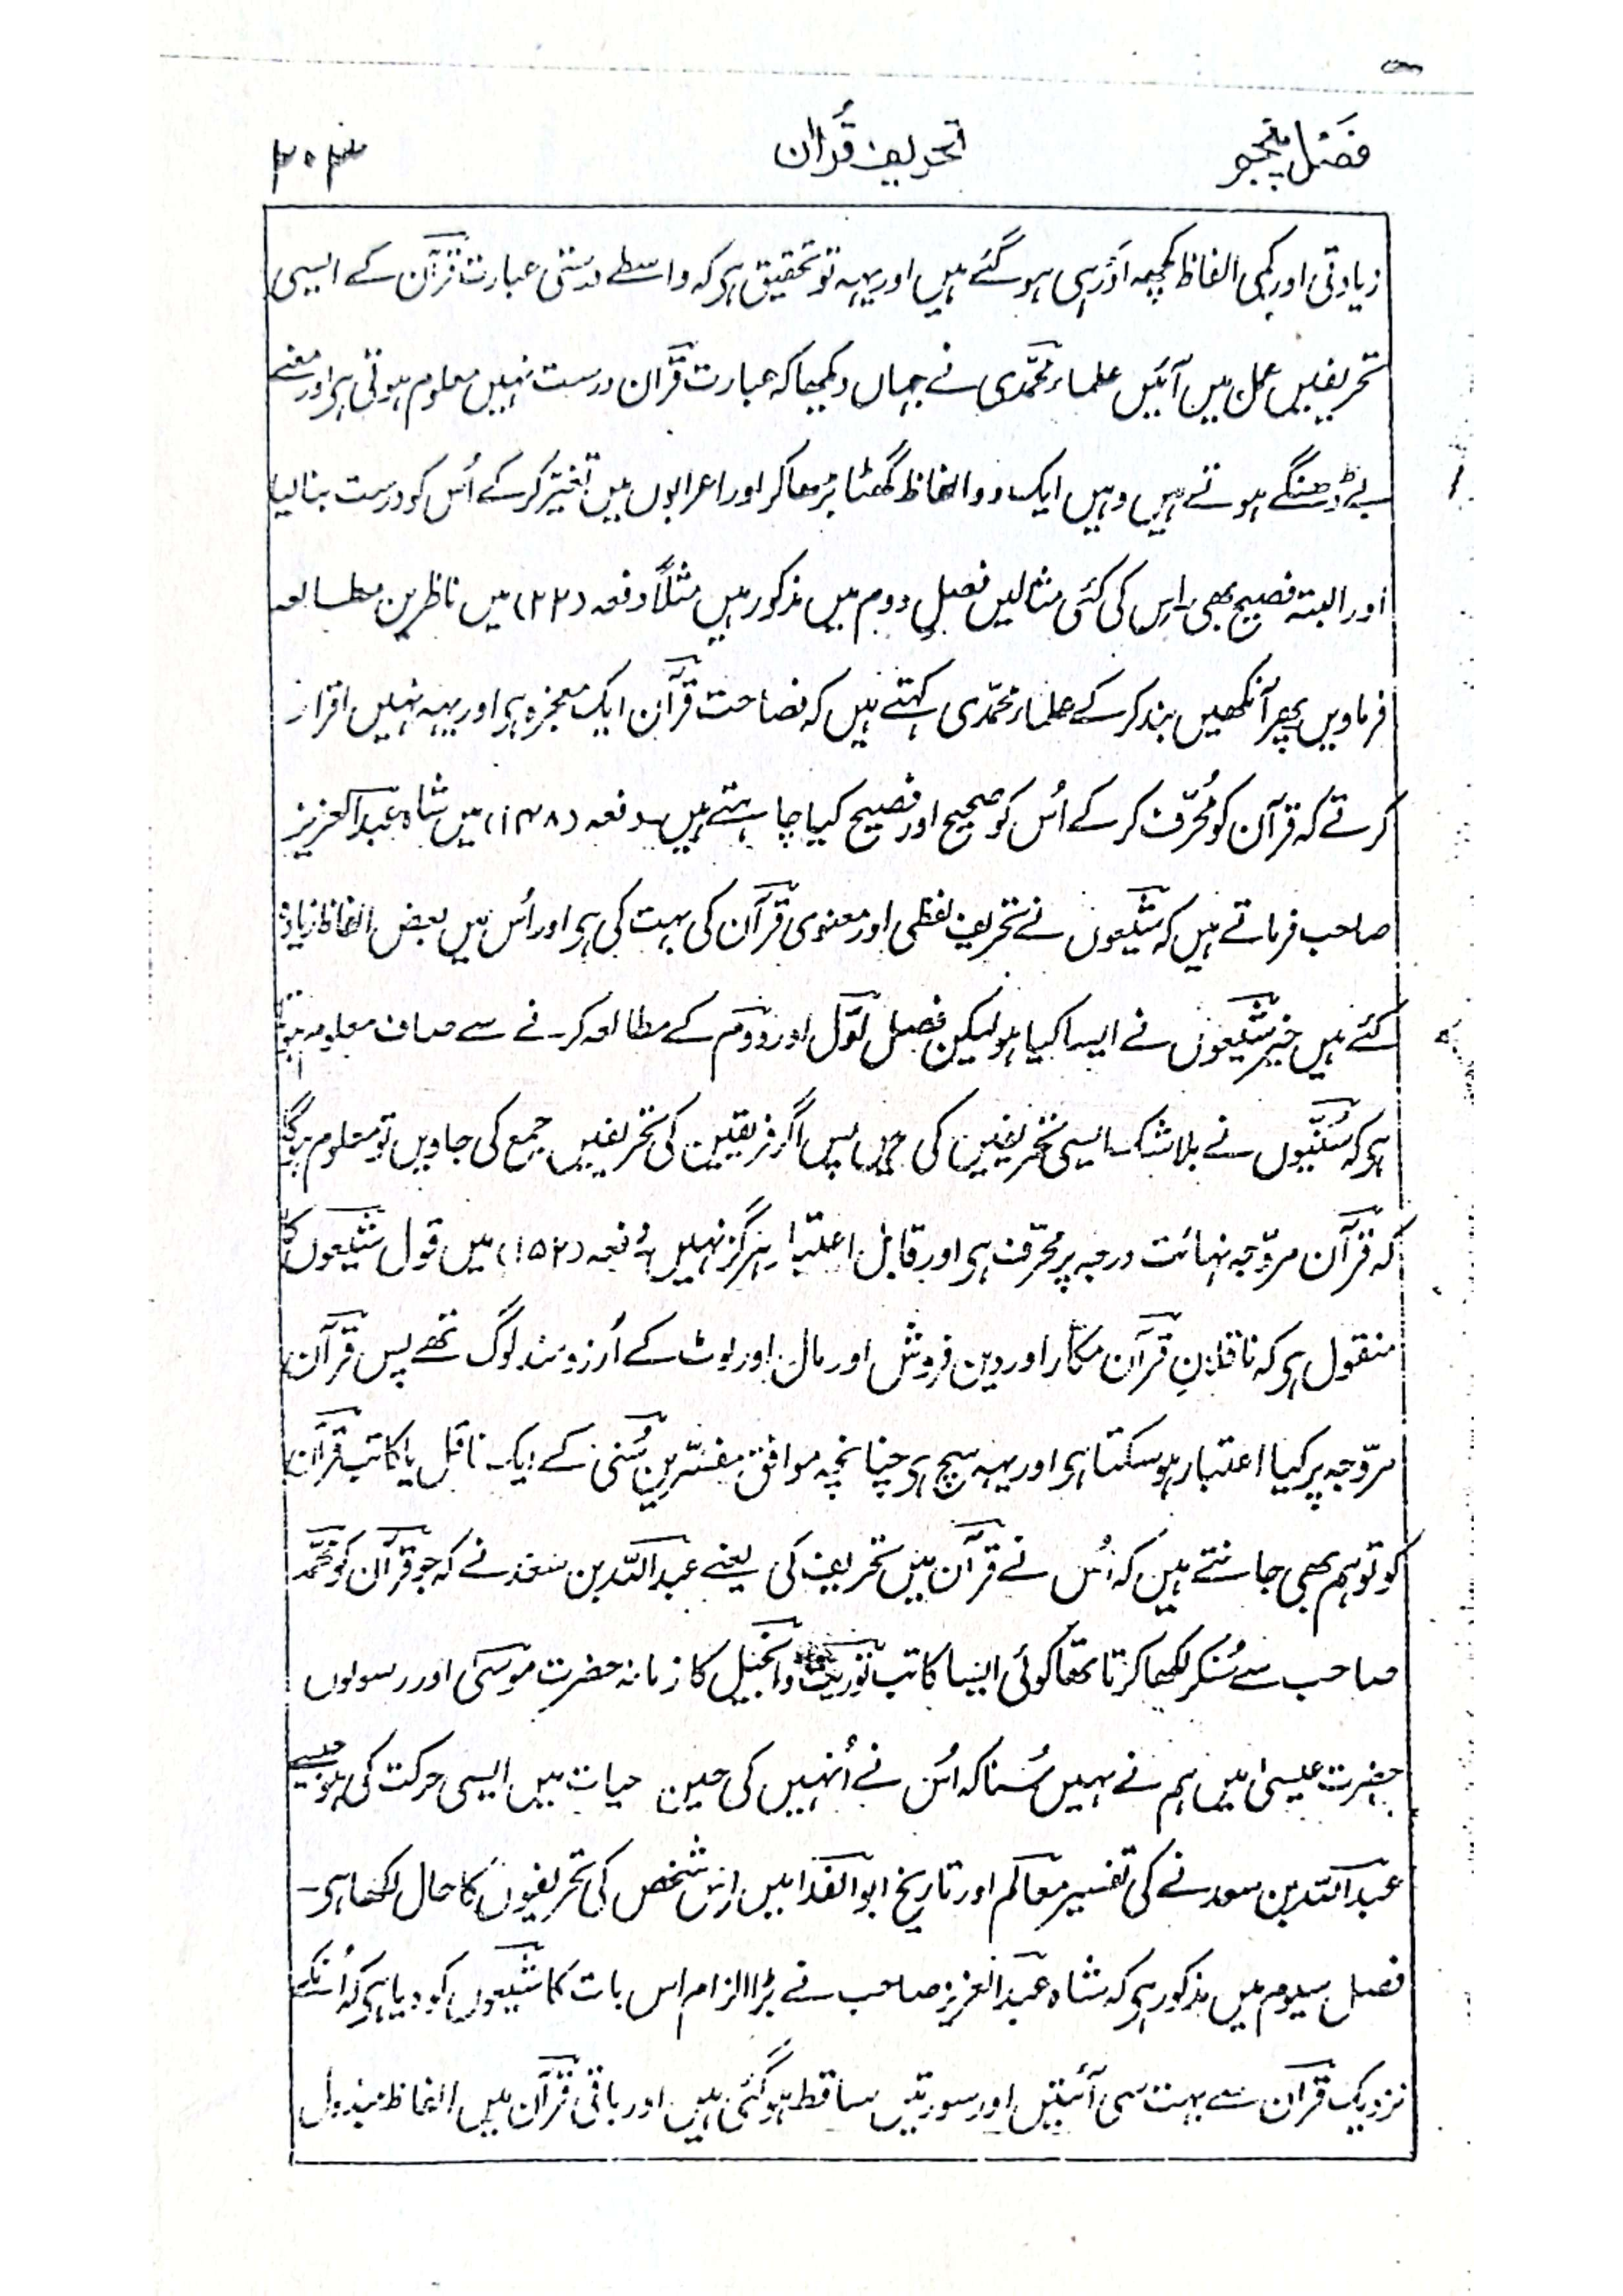 فصل پنجم تحریف قرآن ۳۰۳
زیادتی اور کمی الفاظ کچھہ اَور ہی ہو گئے ہیں اور یہہ تو تحقیق ہی کہ واسطے درستی عبارت قرآن کے ایسی
تحریفیں عمل میں آئیں علماء محمّدی نے جہاں دیکھا کہ عبارت قرآن درست نہیں معلوم ہوتی ہی اور معنے
بے ڈھنگے ہوتے ہیں وہیں ایک دو الفاظ گھٹا بڑھا کر اور اعرابوں میں تغیّر کرکے اُس کو درست بنا لیا
اور البتہ فصیح بھی۔ اِس کی کئی مثالیں فصل دوم میں مذکور ہیں مثلاً دفعہ (۲۲) میں ناظرین مطالعہ
فرماویں پھر آنکھیں بند کرکے علماء محمّدی کہتے ہیں کہ فصاحت قرآن ایک معجزہ ہی اور یہہ نہیں اقرار
کرتے کہ قرآن کو مُحرّف کرکے اُس کو صحیح اور فصیح کیا چاہتے ہیں۔ دفعہ (۱۴۸) میں شاہ عبدالعزیز
صاحب فرماتے ہیں کہ شیعوں نے تحریف لفظی اور معنوی قرآن کی بہت کی ہی اور اُس میں بعض الفاظ زیادہ
کئے ہیں خیر شیعوں نے ایسا کیا ہو لیکن فصل اوّل اور دوّم کے مطالعہ کرنے سے صاف معلوم ہوتا
ہی کہ سُنّیوں نے بلا شک ایسی تحریفیں کی ہیں پس اگر فریقین کی تحریفیں جمع کی جاویں تو معلوم ہوگا
کہ قرآن مروّجہ نہائت درجہ پر محرّف ہی اور قابل اعتبار ہرگز نہیں۔ دفعہ (۱۵۲) میں قول شیعوں کا
منقول ہی کہ ناقلانِ قرآن مکّار اور دین فروش اور مال اور لوٹ کے آرزومند لوگ تھے پس قرآن
مروّجہ پر کیا اعتبار ہو سکتا ہی اور یہہ سچ ہی چنانچہ موافق مفسّرین سُنّی کے ایک ناقل یا کاتب قرآن
کو تو ہم بھی جانتے ہیں کہ اُس نے قرآن میں تحریف کی یعنے عبداللہ بن سعد نے کہ جو قرآن کو محمّد
صاحب سے سُنکر لکھا کرتا تھا کوئی ایسا کاتب توریت وانجیل کا زمانہ حضرت موسیٰ اور رسولوں
حضرت عیسیٰ میں ہم نے نہیں سُنا کہ اُس نے اُنہیں کی حین حیات میں ایسی حرکت کی ہو جیسے
عبداللہ بن سعد نے کی تفسیر معالم اور تاریخ ابوالفدا میں اِس شخص کی تحریفوں کا حال لکھا ہی۔
فصل سیوم میں مذکور ہی کہ شاہ عبدالعزیز صاحب نے بڑا الزام اس بات کا شیعوں کو دیا ہی کہ اُنکے
نزدیک قرآن سے بہت سی آئتیں اور سورتیں ساقط ہو گئی ہیں اور باقی قرآن میں الفاظ